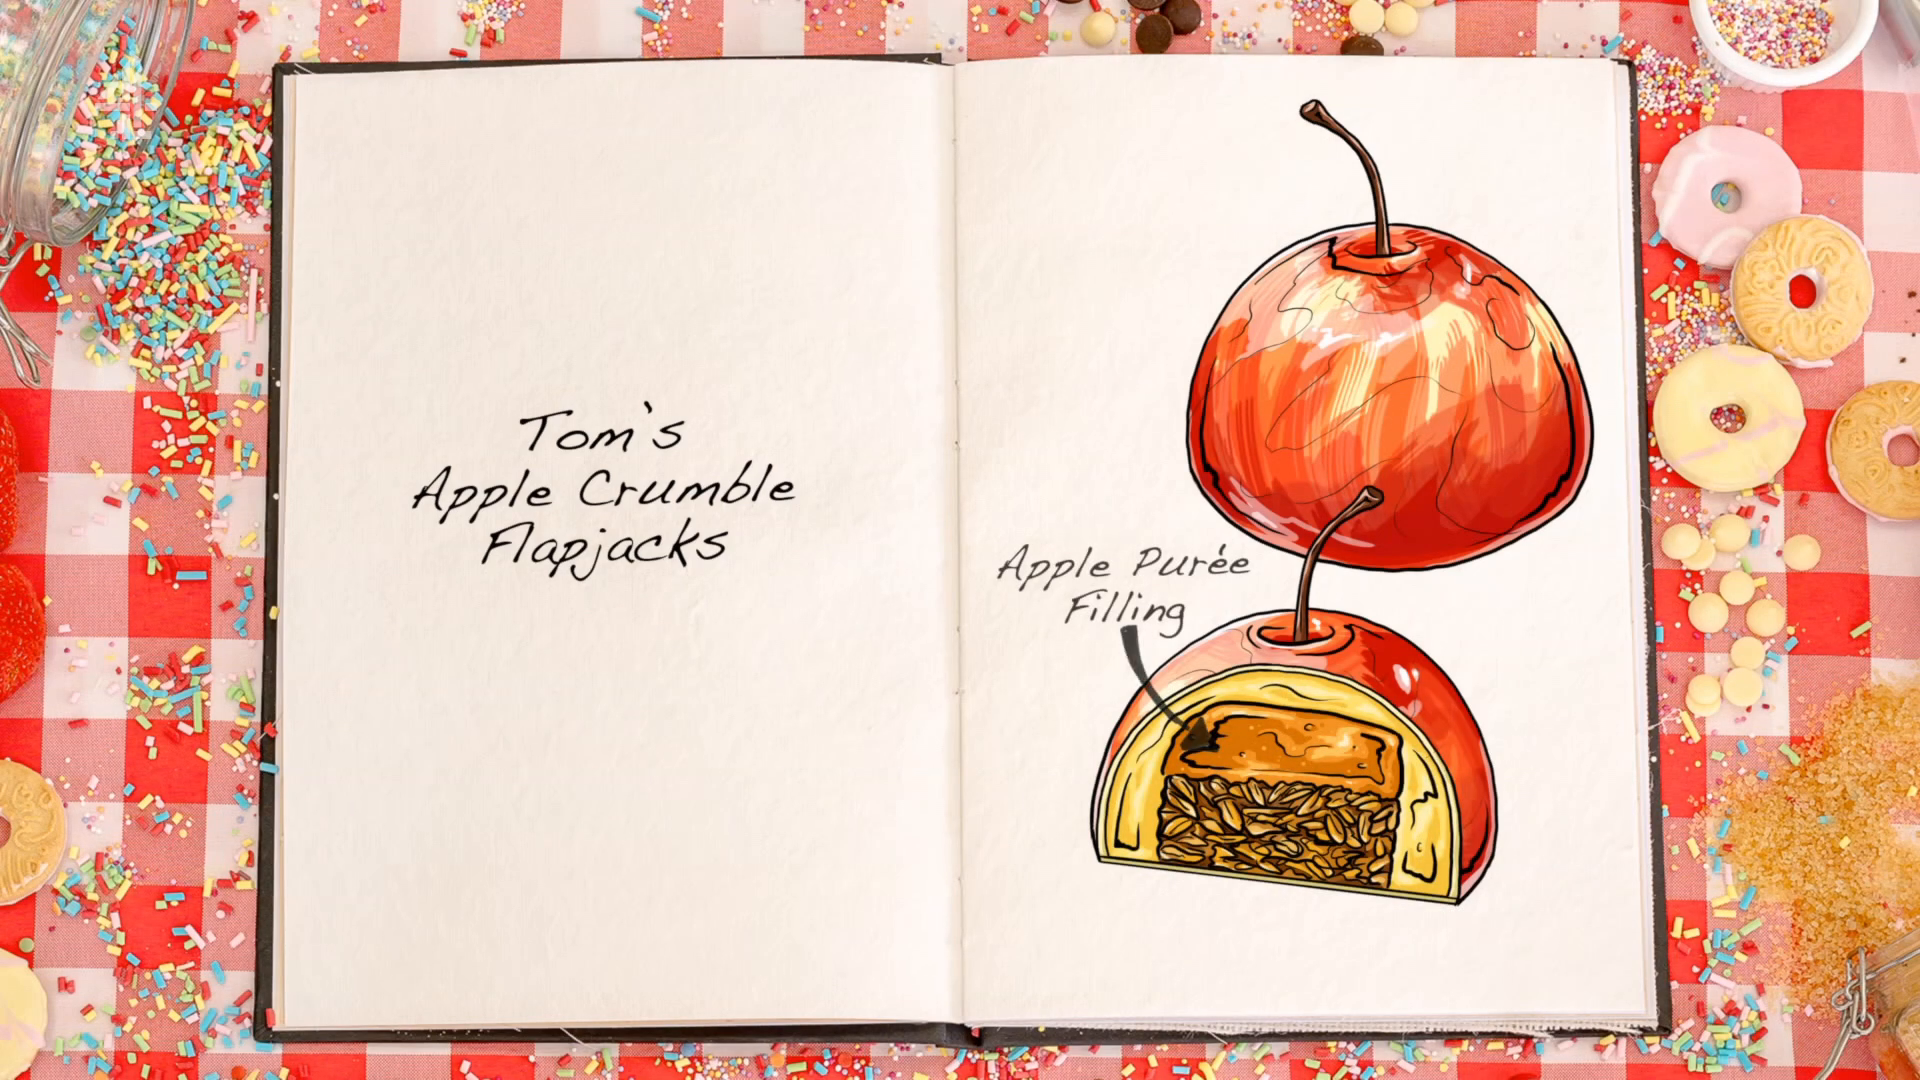 Tom's
Apple Crumble
Flapjacks
Apple Purée
Filling